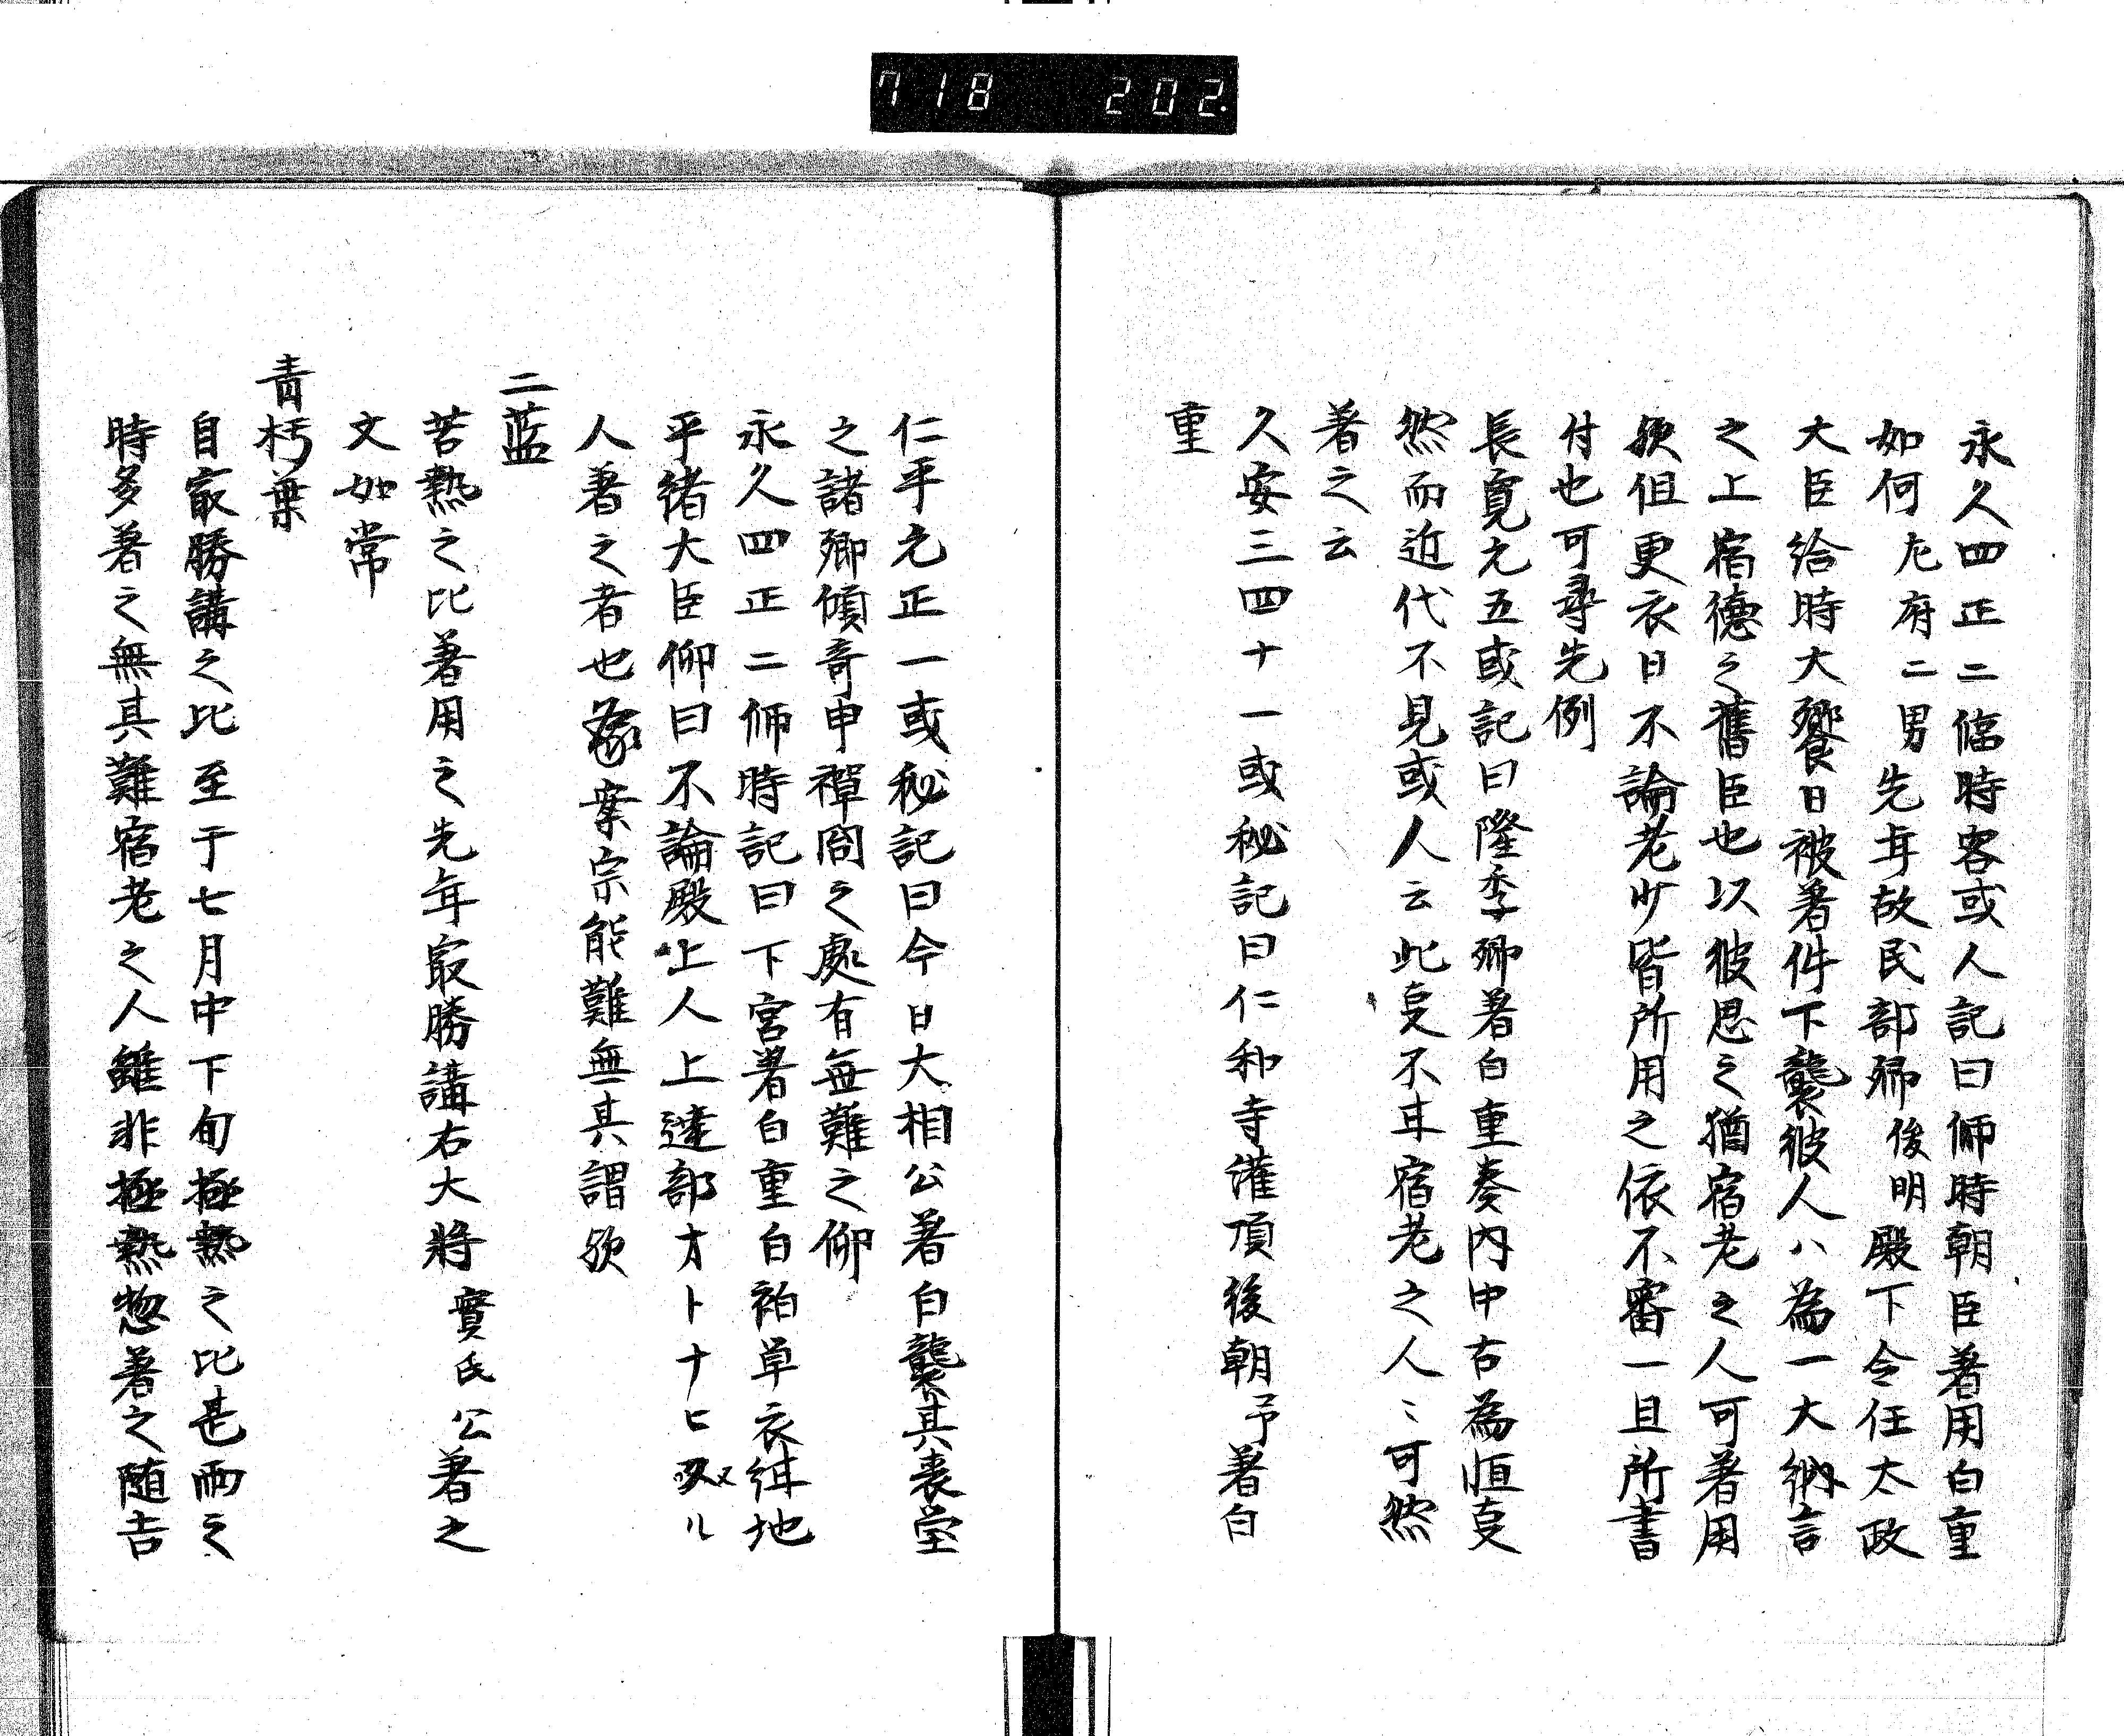 718 202.
永久四正二臨時客或人記曰師時朝臣著用白重
如何左府二男先年故民部卿俊明殿下令任太政
大臣給時大饗日被著件下襲彼人八為一大納言
之上宿德之舊臣也以彼思之猶宿老之人可著用
歟但更衣日不論老少皆所用之依不審一旦所書
付也可尋先例
長寛元五或記曰隆季卿著白重奏內中古為恒叓
然而近代不見或人云此叓不甘宿老之人〻可然
著之云
久安三四十一或秘記曰仁和寺灌頂後朝予著白
重
仁平元正一或秘記曰今日大相公著白襲其裏瑩
之諸卿傾奇申禪閤之處有無難之仰
永久四正二師時記曰下官著白重白袙単衣練地
平緒大臣仰曰不論殿上人上達部オトナヒタル
人著之者也案宗能難無其謂歟
二藍
苦熱之比著用之先年最勝講右大将實氏公著之
文如常
青朽葉
自最勝講之比至于七月中下旬極熱之比甚雨之
時多著之無其難宿老之人雖非極熱惣著之随吉